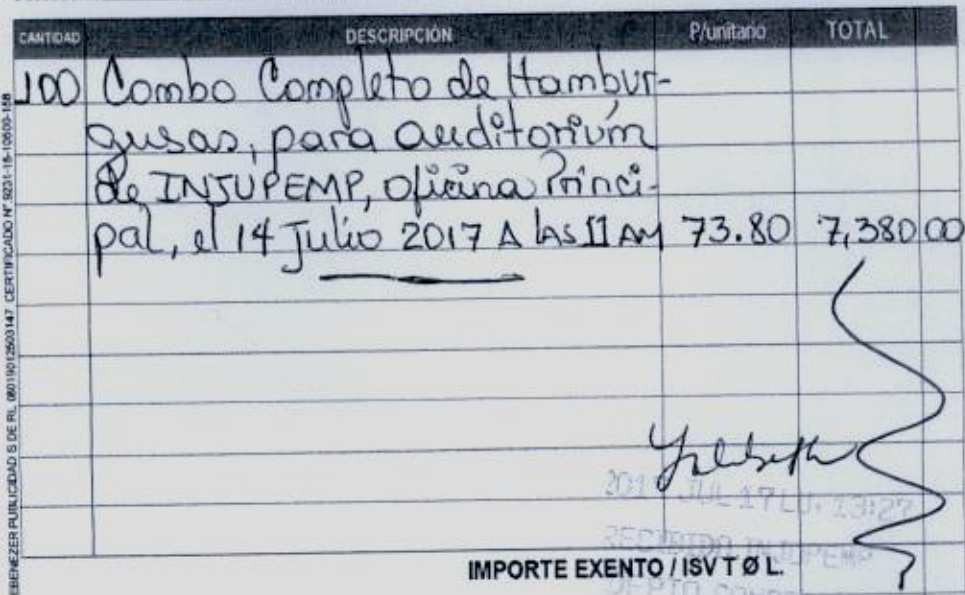 CANTIDAD DESCRIPCIÓN P/unitario TOTAL
100 Combo Completo de Hambur-
gusas, para auditorium
de INJUPEMP, oficina Princi-
pal, el 14 Julio 2017 A las 11 AM 73.80 7,380 00
2017 JUL 17 LU. 13:27
RECIBIDO INJUPEMP
DEPTO
IMPORTE EXENTO / ISV T Ø L.
EBENEZER PUBLICIDAD S DE RL, 08019012503147 CERTIFICADO Nº.9231-15-10600-158